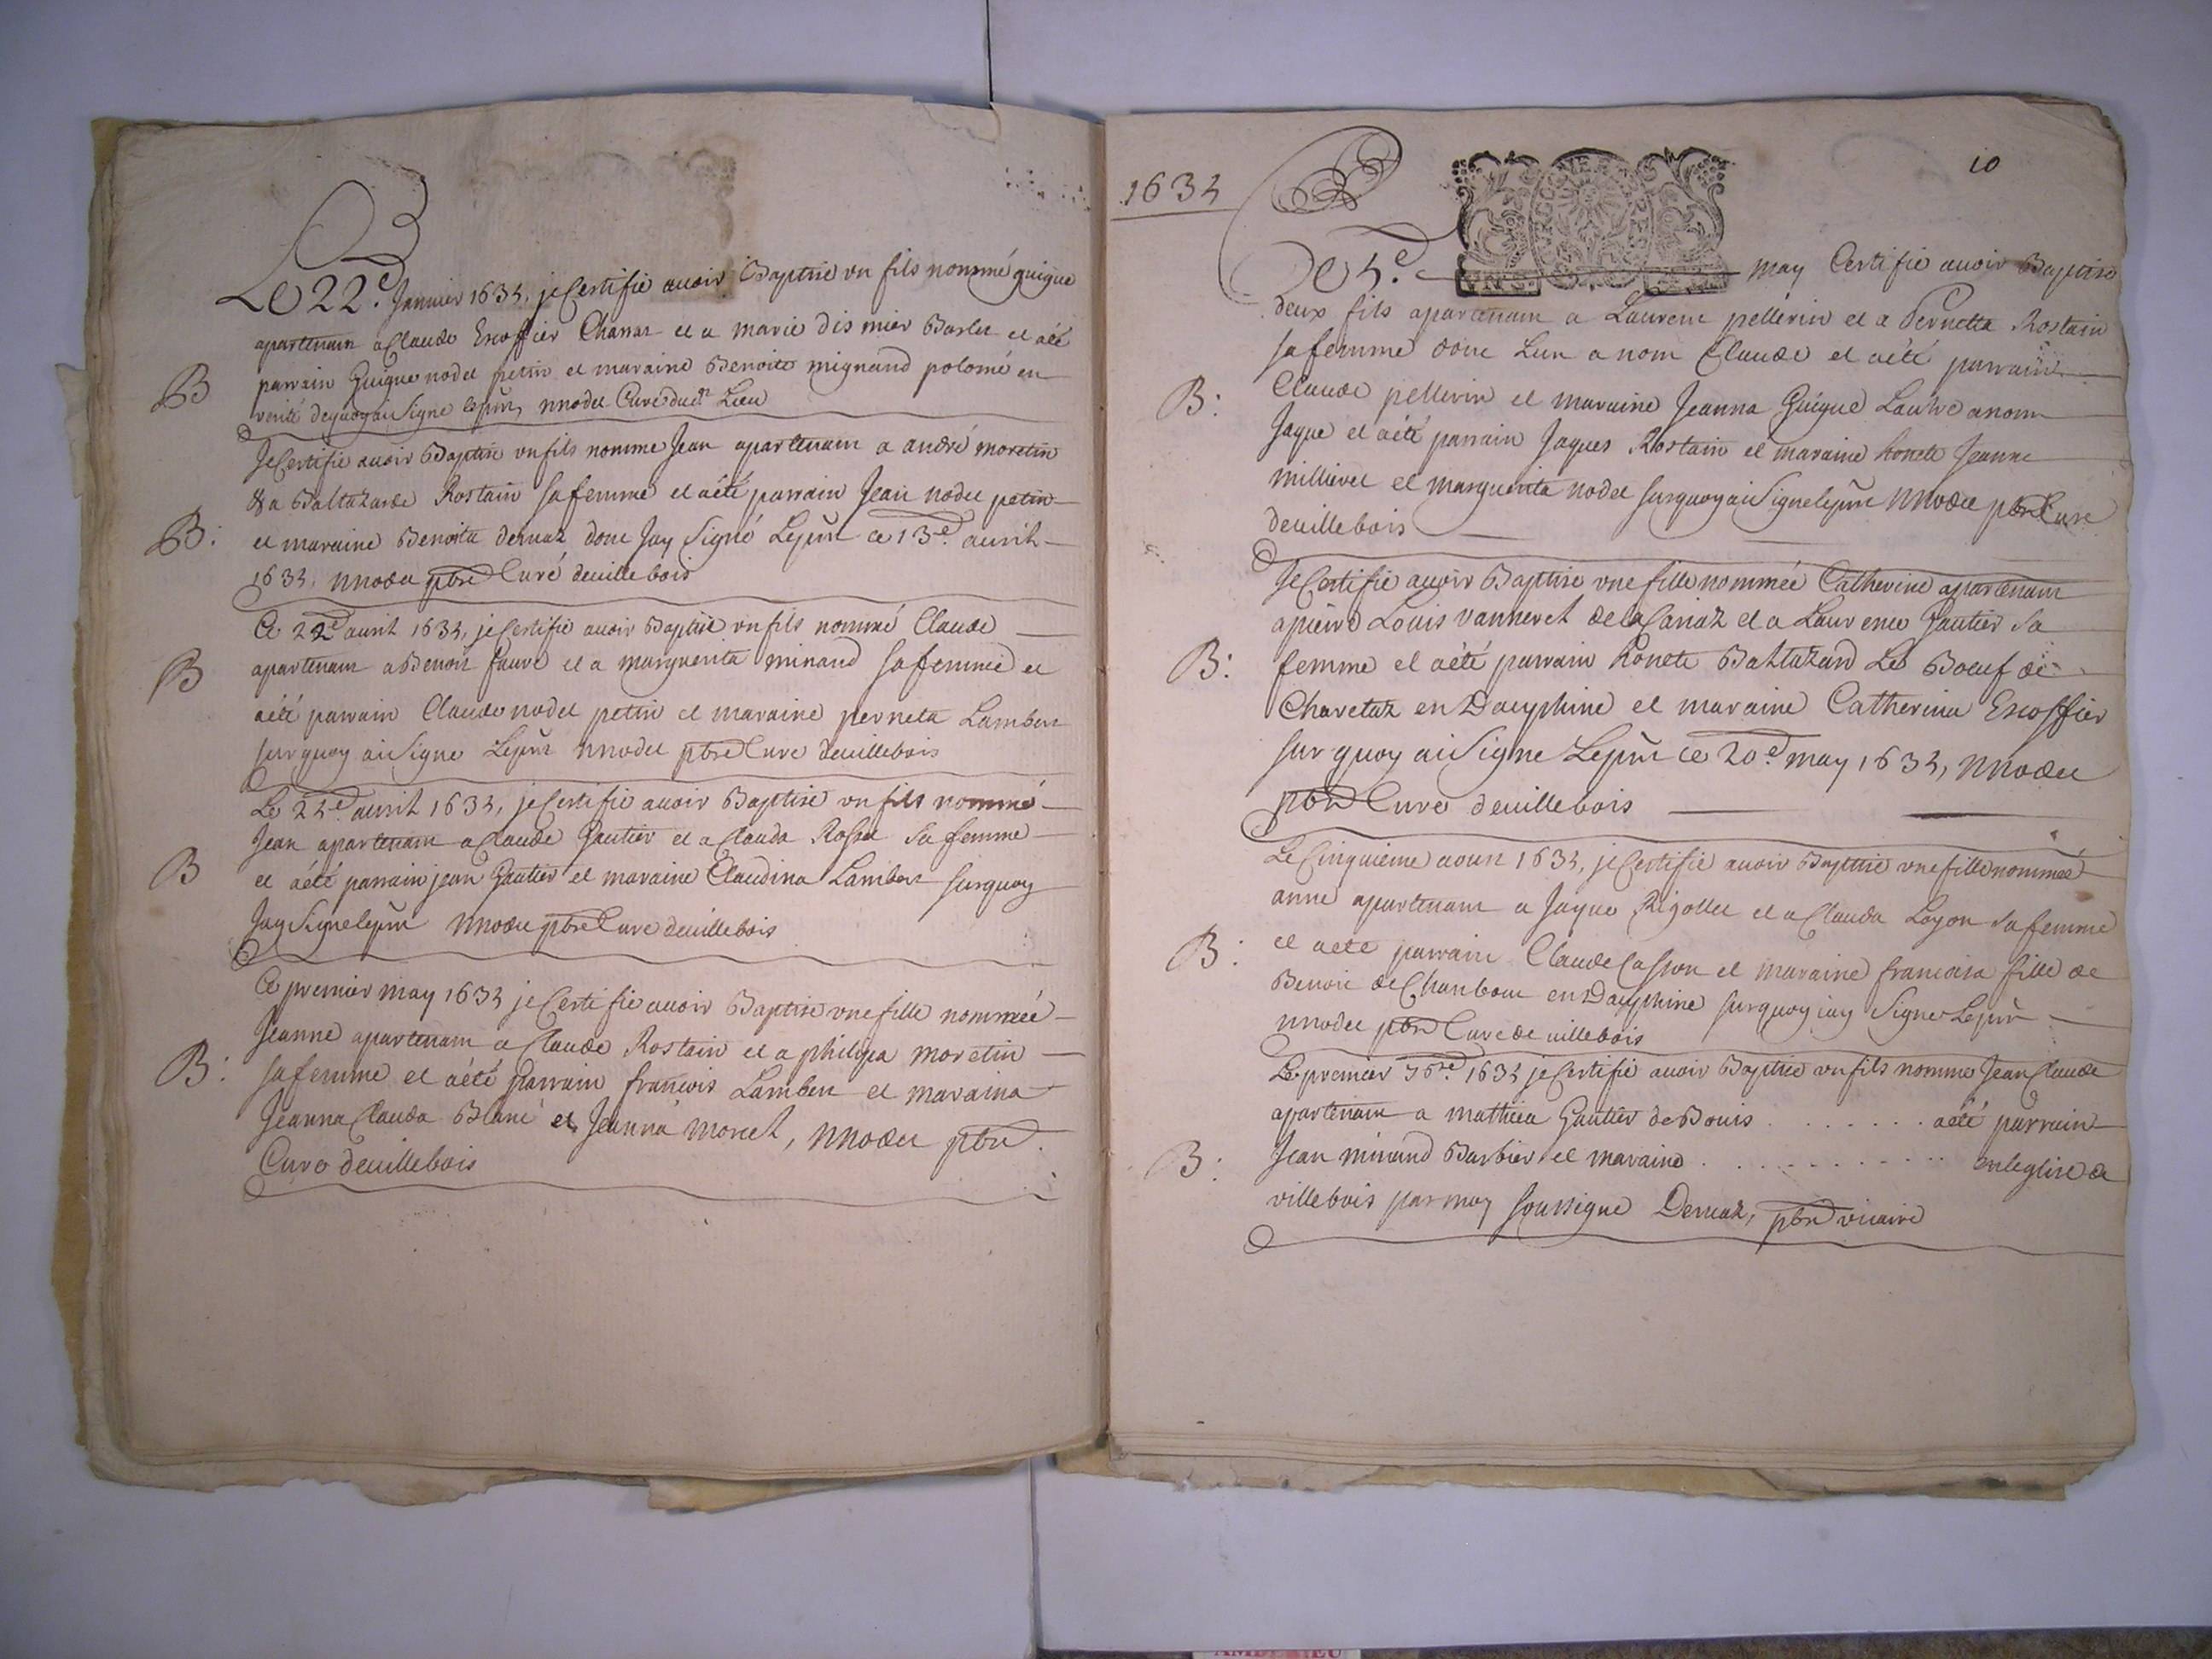 Le 22.e Janvier 1634, je Certifie avoir Baptise vn fils nommé guigue
apartenam a Claude Escoffier Charrar et a marie dismier Barlet et aété
B
parrain Guigue nodet petin et maraine Benoite mignand polomé en
verité dequoy ai Signe lepñt, nnodet Curé dud.t Lieu
Je Certifie avoir Baptise vn fils nomme Jean apartenam a andré moretin
& a Baltazarde Rostain sa femme et aété parrain Jean nodet petin
B:
et maraine Benoita dernaz donc Jay Signé Lepñt ce 13.e avril
1634, nnodet pbre Curé deuillebois
Ce 22.e avril 1634, je Certifie avoir Baptise vn fils nommé Claude
B
apartenam a Benoit faure et a marguerita minand sa femme et
aété parrain Claude nodet petin et maraine perneta Lambert
surquoy ai Signe Lepñt nnodet pbre Cure deuillebois
Le 24.e avril 1634, je Certifie avoir Baptise vn fils nommé
Jean apartenam a Claude Gautier et a Clauda Rosset Sa femme
B
et aété parrain jean Gautier et maraine Claudina Lambert surquoy
Jay Signe lepñt nnodet pbre Cure deuillebois
Ce premier may 1634 je Certifie avoir Baptise vne fille nommeé
Jeanne apartenam a Claude Rostain et a philipa moretin
B:
sa femme et aété parrain francois Lambert et maraina
Jeanna Clauda Blanc et Jeanna moret, nnodet pbre
Cure deuillebois
1634
10
De 4.e may Certifie avoir Baptise
deux fils apartenam a Laurent pellerin et a Pernetta Rostain
sa femme donc Lun a nom Claude et aété parrain
B:
Claude pellerin et maraine Jeanna Guigue Lautre a nom
Jaque et aété parrain Jaques Rostain et maraine honete Jeanne
millieret et marguerita nodet surquoy ai Signe lepñt nnodet pbre Cure
deuillebois
Je Certifie avoir Baptise vne fille nommée Catherine apartenam
a pierre Louis vanneret de la Cariaz et a Laurence Gautier Sa
B:
femme et aété parrain honete Baltazard Le Boeuf de
Charetaz en Dauphine et maraine Catherina Escoffier
surquoy ai Signe Lepñt ce 20.e may 1634, nnodet
pbre Cure deuillebois
Le Cinquieme aoust 1634, je Certifie avoir Baptise vne fille nommeé
anne apartenam a Jaque Rigollet et a Clauda Layon Sa femme
B:
et aete parrain Claude Casson et maraine francoisa fille de
Benoit de Chanbout en Dauphine surquoy jay Signe Lepñt
nnodet pbre Cure de uillebois
Le premier 7bre. 1634 je Certifie avoir Baptise vn fils nomme Jean Claude
apartenam a mathieu Gautier de Bouis . . . . . . . aété parrain
B:
Jean minand Barbier et maraine . . . . . . . . . . en leglise de
villebois par moy soussigne Dernaz, pbre vicaire